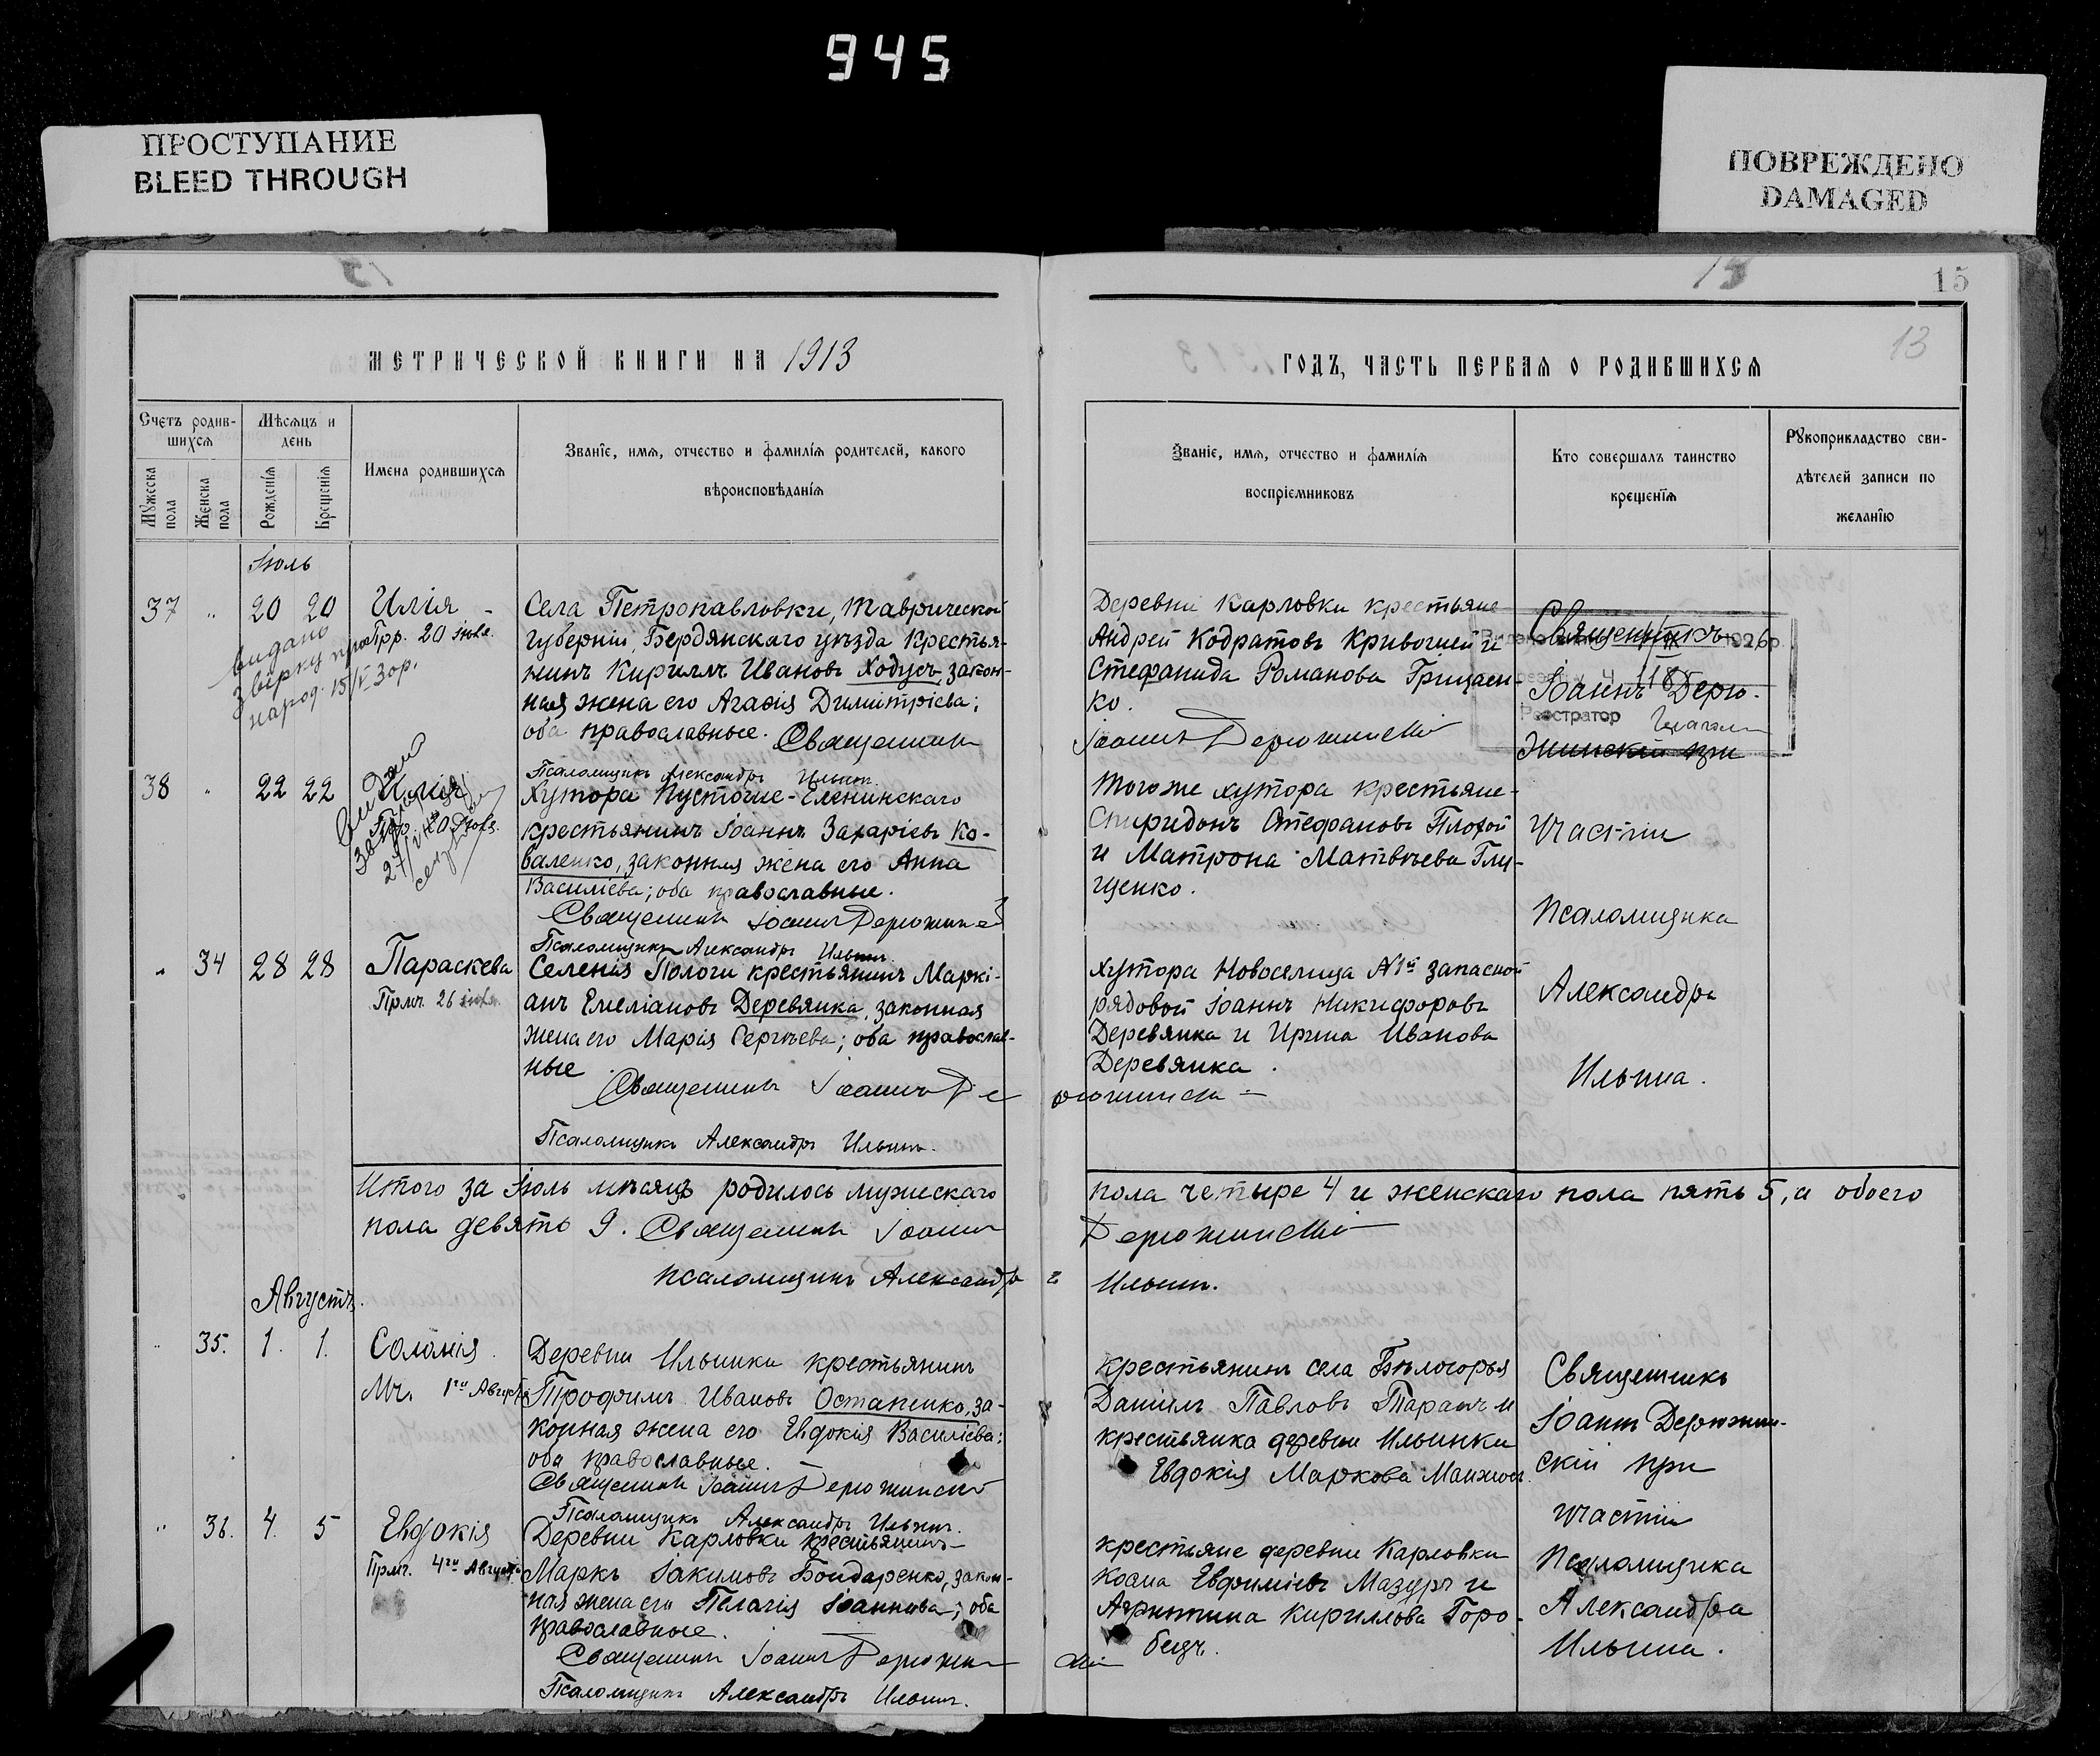 945
ПРОСТУПАНИЕ
BLEED THROUGH
ПОВРЕЖДЕНО
DAMAGED
15
13
МЕТРИЧЕСКОЙ КНИГИ НА 1913
ГОДЪ, ЧАСТЬ ПЕРВАЯ О РОДИВШИХСЯ
Счетъ родив-
шихся
Мужеска
пола
Женска
пола
Мѣсяцъ и
день
Рожденія
Крещенія
Имена родившихся
Званіе, имя, отчество и фамилія родителей, какого
вѣроисповѣданія
Званіе, имя, отчество и фамилія
воспріемниковъ
Кто совершалъ таинство
крещенія
Рукоприкладство сви-
дѣтелей записи по
желанію
Іюль
37 " 20 20 Илія
Прр. 20 іюля.
видано
звірку про
народ. 15/V 30р.
Села Петропавловки, Таврической
губерніи, Бердянскаго уѣзда крестья-
нинъ Кириллъ Ивановъ Ходусъ, закон-
ная жена его Агафія Димитріева;
оба православные. Священникъ
Псаломщикъ Александръ Ильинъ
Деревни Карловки крестьяне
Андрей Кодратовъ Кривошей и
Стефанида Романова Грицаен-
ко.
Іоаннъ Дерюжинскій
Священникъ
Іоаннъ Дерю-
жинскій при
1926р
118
Реєстратор
38 " 22 22 Илія
Прр. 20 іюля.
Хутора Пустогие-Еленинскаго
крестьянинъ Іоаннъ Захаріевъ Ко-
валенко, законная жена его Анна
Василіева; оба православные.
Священникъ Іоаннъ Дерюжинскій
Псаломщикъ Александръ Ильинъ.
Того же хутора крестьяне
Спиридонъ Стефановъ Плохой
и Матрона Матвѣева Глу-
щенко.
участіи
псаломщика
Александра
Ильина.
" 34 28 28 Параскева
Прмч. 26 іюля.
Селенія Пологи крестьянинъ Маркі-
анъ Емеліановъ Деревянка, законная
жена его Марія Сергѣева; оба православ-
ные.
Священникъ Іоаннъ Дерюжинскій
Псаломщикъ Александръ Ильинъ.
Хутора Новоселица №1й запасной
рядовой Іоаннъ Никифоровъ
Деревянка и Ирина Иванова
Деревянка.
Итого за Іюль мѣсяцъ родилось мужескаго пола четыре 4 и женскаго пола пять 5, а обоего
пола девять 9. Священникъ Іоаннъ Дерюжинскій
псаломщикъ Александръ Ильинъ.
Августъ.
" 35. 1. 1. Соломія.
Мч. 1го Августа
Деревни Ильинки крестьянинъ
Трофимъ Ивановъ Остапенко, за-
конная жена его Евдокія Василіева;
оба православные.
Священникъ Іоаннъ Дерюжинскій
Псаломщикъ Александръ Ильинъ.
крестьянинъ села Бѣлогорья
Даніилъ Павловъ Таранъ и
крестьянка деревни Ильинки
Евдокія Маркова
Священникъ
Іоаннъ Дерюжин-
скій при
участіи
псаломщика
Александра
Ильина.
" 36. 4. 5 Евдокія
Прмч. 4го Августа
Деревни Карловки крестьянинъ
Маркъ Іакимовъ Бондаренко, закон-
ная жена его Пелагія Іоаннова; оба
православные.
Священникъ Іоаннъ Дерюжинскій
Псаломщикъ Александръ Ильинъ.
крестьяне деревни Карловки
Косма Евфиміевъ Мазуръ и
Агрипина Кириллова Горо-
бецъ.